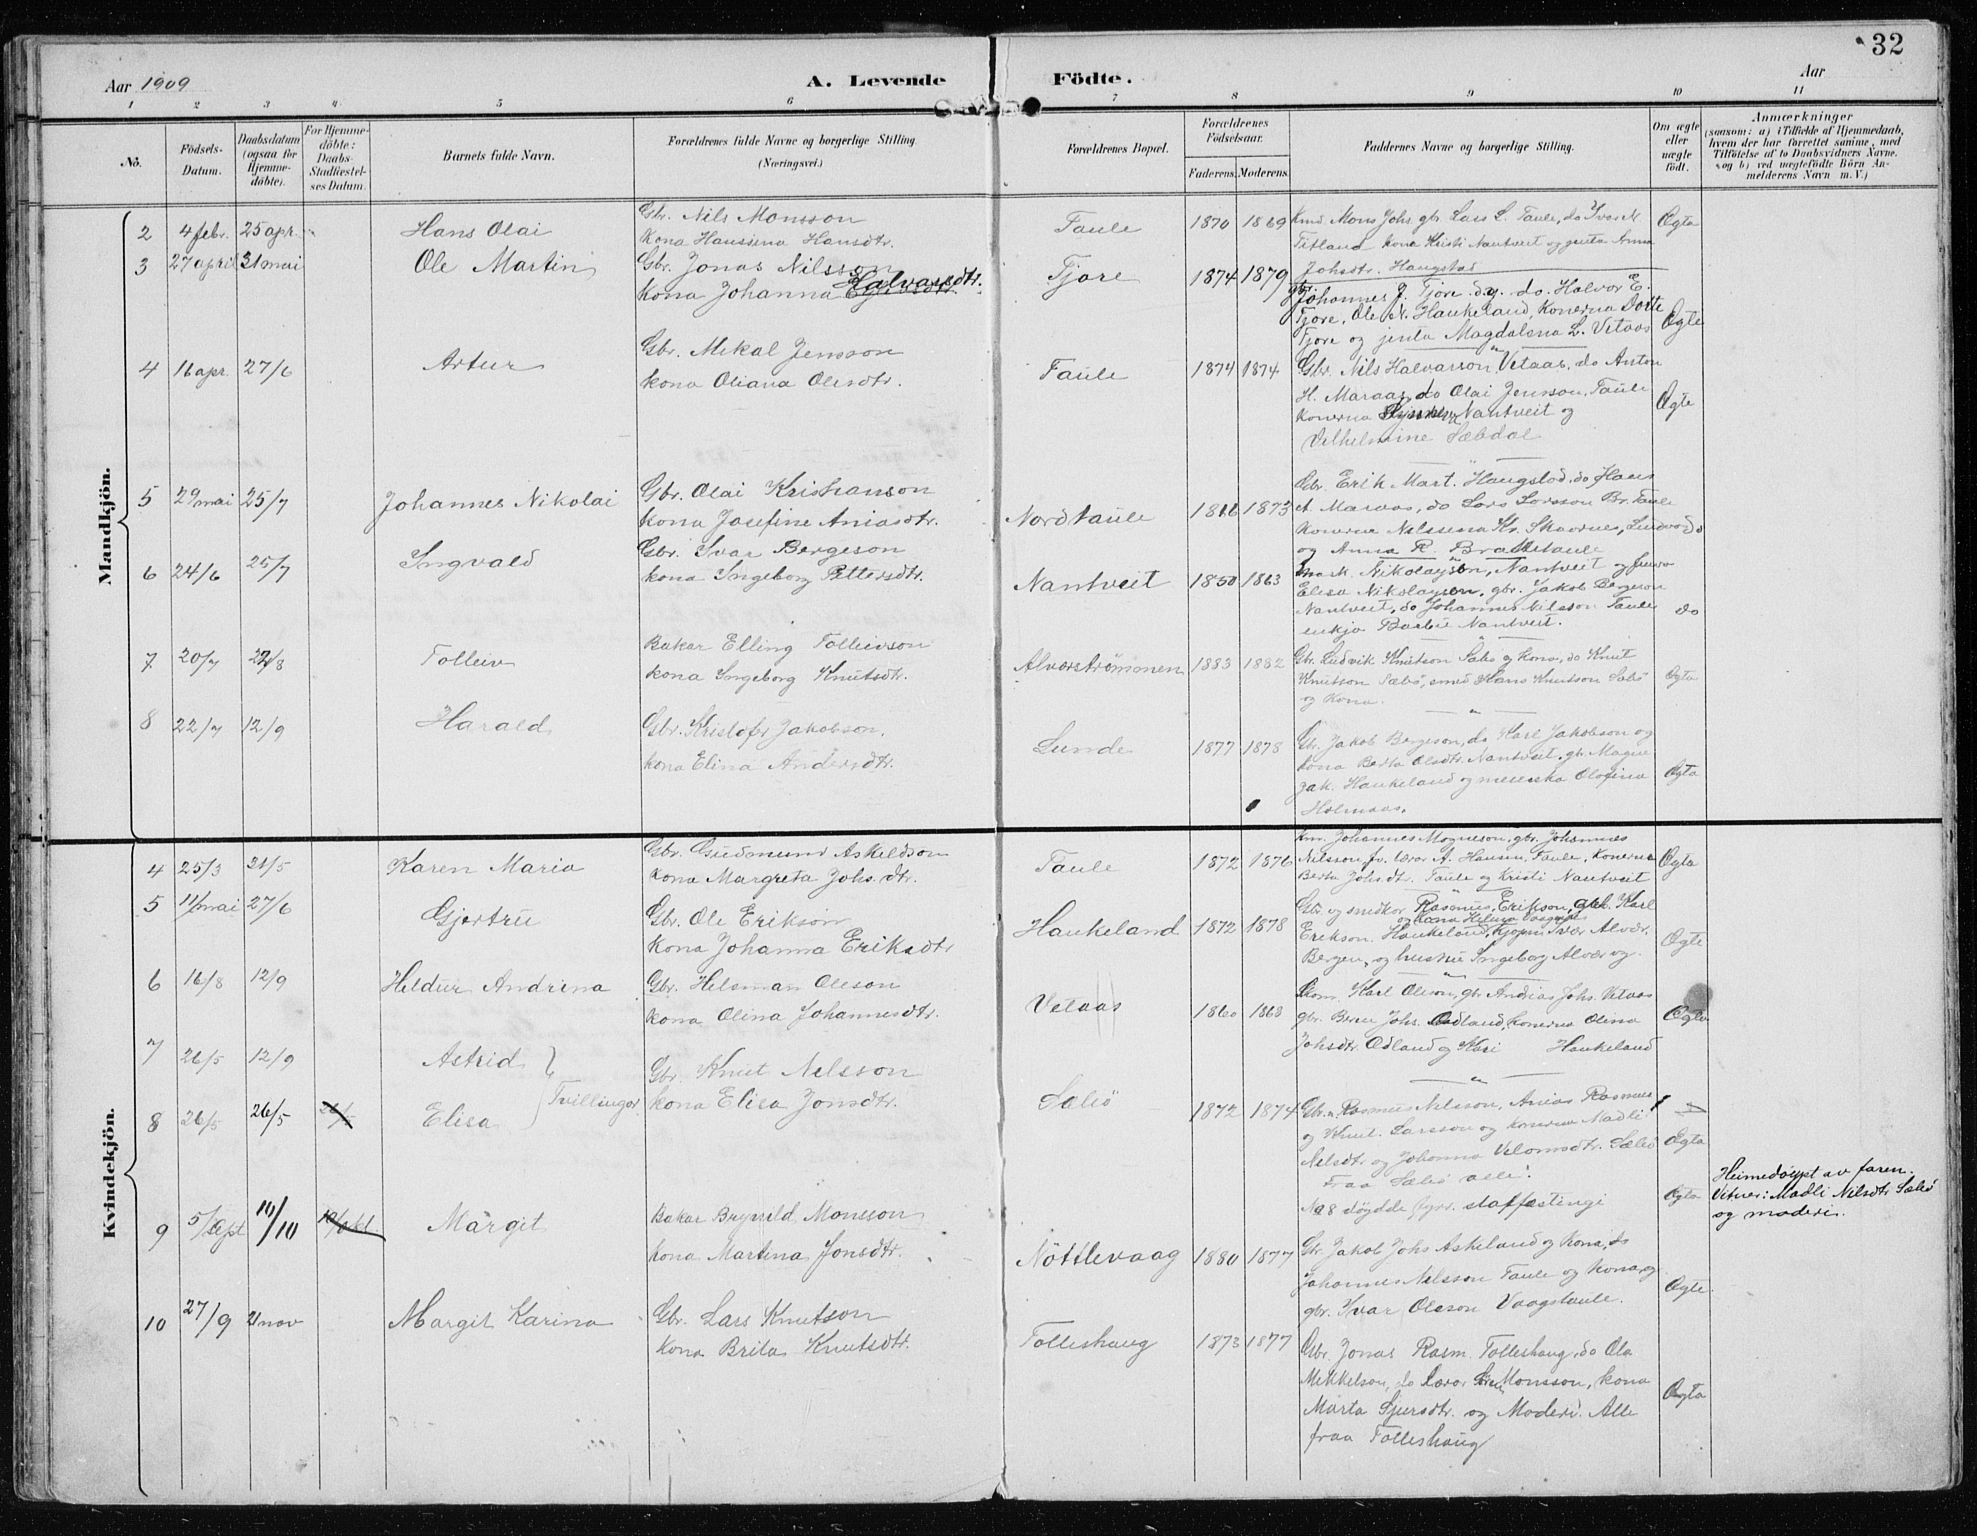 32
Aar 1909
A. Levende Födte.
Aar
1 2 3 4 5 6 7 8 9 10 11
No.
Födsels-
Datum.
Daabsdatum
(ogsaa for
Hjemme-
döbte).
For Hjemme-
döbte:
Daabs-
Stadfæstel-
ses Datum.
Barnets fulde Navn.
Forældrenes fulde Navne og borgerlige Stilling
(Næringsvei.)
Forældrenes Bopæl.
Forældrenes
Födselsaar.
Faderens. Moderens.
Faddernes Navne og borgerlige Stilling.
Om ægte
eller
uægte
födt.
Anmærkninger
(saasom: a) i Tilfælde af Hjemmedaab,
hvem der har forrettet samme, med
Tilföielse af to Daabsvidners Navne.
og b) ved uægtefödte Börn An-
melderens Navn m. V.)
Mandkjön.
2 4 febr. 25 apr. Hans Olai
Gbr. Nils Monsson
Kona Hansina Hansdtr.
Taule 1870 1869
Kmd Mons Johs. gbr Lars L. Taule, do Ivar N.
Titland kona Kristi Nantveit og jenta Anna
Johsdtr. Haugstad
Ægta
3 27 april 31 mai Ole Martin
Gbr. Jonas Nilsson
Kona Johanna Halvarsdtr.
Tjore 1874 1879
gbr.
Johannes J. Tjore og do. Halvor E.
Tjore, Ole N. Haukeland, Konerna Dorte
Tjore og jenta Magdalena L. Vetaas
Ægte
4 16 apr. 27/6 Artur
Gbr. Mikal Jensson
kona Oliana Olesdtr.
Taule 1874 1874
Gbr. Nils Halvarson Vetaas, do Anton
H. Maraas, do Olai Jensson, Taule
Konerna Nantveit og
Vilhelmine Sæbdal
Ægte
5 29 mai 25/7 Johannes Nikolai
Gbr. Olai Kristianson
Kona Josefine Aniasdtr.
Nordtaule 1873
Gbr. Erik Mart. Haugstad, do Hans
A. Maraas, do Lars Larsson Br. Taule
Konerna Nilsina Kr. Skavnes,
og Anna R Brattetaule
6 24/6 25/7 Ingvald
Gbr. Ivar Bergeson
kona Ingeborg Pettersdtr.
Nantveit 1850 1863
Nikolaysen, Nantveit og fruva
Elisa Nikolaysen, gbr. Jakob Bergeson
Nantveit, do Johannes Nilsson Taule
enkja Barbu Nantveit.
do
7 20/7 22/8 Tolleiv
Bakar Elling Tolleivson
kona Ingeborg Knutsdtr.
Alverströmmen 1883 1882
Gbr. Ludvik Knutson Sæbö og kona, do Knut
Knutson Sæbö, smed Hans Knutsson Sæbö
og Kona.
Ægta
8 22/7 12/9 Harald
Gbr. Kristofer Jakobson,
kona Elina Andersdtr.
Lunde 1877 1878
Gbr. Jakob Bergeson, do Karl Jakobson og
kona Berta Olsdtr. Nantveit, gbr. Magne
Jak. Haukeland og meierska Olofina
Holmaas.
Ægta
Kvindekjön.
4 25/3 21/5 Karen Maria
Gbr. Gudmund Askeldson
kona Margreta Johs. dtr.
Taule 1872 1876
Km. Johannes Mogneson, gbr. Johannes
Nilsson fv. lærar A. Hansen, Taule, Konerna
Berta Johsdtr. Taule og Kristi Nantveit
Ægta
5 11 mai 27/6 Gjertru
Gbr. Ole Erikson
Kona Johanna Eriksdtr
Haukeland 1872 1878
Gbr og smedkar Rasmus Erikson, Karl
og Kona Helena
Erikson, Haukeland, Alvær,
Bergen, og husfrue Ingeborg Alvær og
Ægte
6 16/8 12/9 Heldur Andrina
Gbr. Helsman Oleson
kona Olina Johannesdtr.
Vetaas 1860 1868
Karl Oleson, gbr Andias Johs. Vetaas
gbr. Bern. Johs. Odland, konerna Olina
Johsdtr. Odland og Kari Haukeland
Ægte
7 26/5 12/9 Astrid
8 26/5 26/5 26/5 Elisa
Tvillingar
Gbr. Knut Nilsson
kona Elisa Jonsdtr.
Sæbö 1872 1874
Gbr. Rasmus Nilsson, Anias Rasmus
og Knut Larsson og konerna Madli
Nilsdtr og Johanna Velomsdtr. Sæbö
Fraa Sæbö alle.
No 8 döydde fyrr stadfestingi
Ægta
Ægta
Heimedöypt av faren.
Vitner: Madli Nilsdtr Sæbö
og moderi.
9 5/Sept 10/10 Margit
Bakar Brynild Monsson
kona Martina Jonsdtr.
Nöttlevaag 1880 1877
Gbr. Jakob Johs Askeland og kona, do
Johannes Nilsson Taule og kona og
gbr. Ivar Oleson Vaagstaule.
Ægte.
10 27/9 21 nov Margit Karina
Gbr. Lars Knutson
Kona Brita Knutsdtr.
Tolleshaug 1873 1877
Gbr. Jonas Rasm. Tolleshaug, do Ola
Mikkelson, do Lærar Monsson, kona
Marta Sjursdtr. og Moderi. Alle
fraa Tolleshaug
Ægta